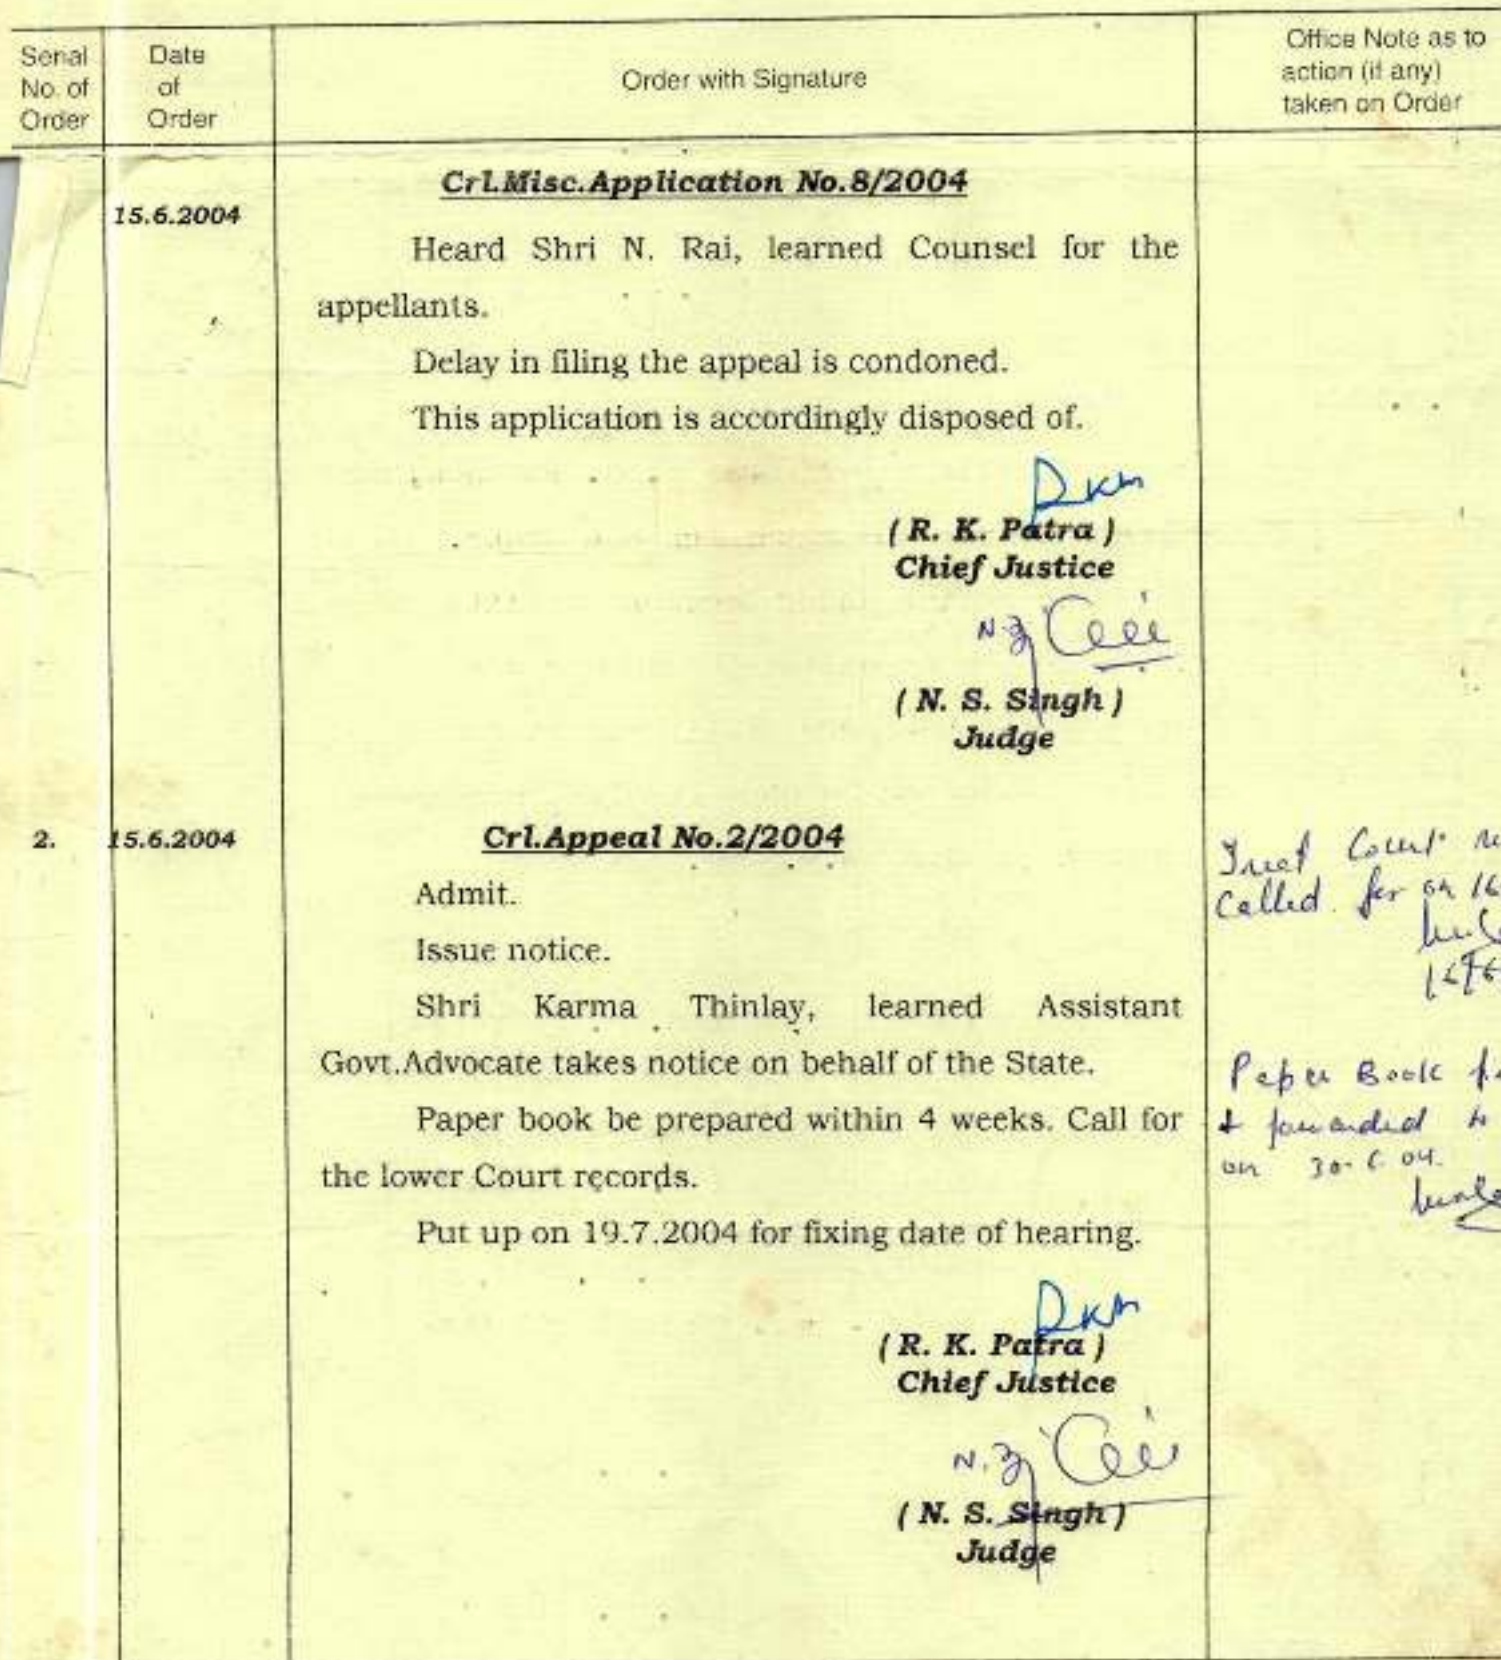 Serial No. of Order
Date of Order
Order with Signature
Office Note as to action (if any) taken on Order
Crl.Misc.Application No.8/2004
15.6.2004
Heard Shri N. Rai, learned Counsel for the
appellants.
Delay in filing the appeal is condoned.
This application is accordingly disposed of.
( R. K. Patra )
Chief Justice
( N. S. Singh )
Judge
2. 15.6.2004
Crl.Appeal No.2/2004
Admit.
Issue notice.
Shri Karma Thinlay, learned Assistant
Govt.Advocate takes notice on behalf of the State.
Paper book be prepared within 4 weeks. Call for
the lower Court records.
Put up on 19.7.2004 for fixing date of hearing.
( R. K. Patra )
Chief Justice
( N. S. Singh )
Judge
Court
Called for on 16
Paper Book
& forwarded
on 30.6.04.